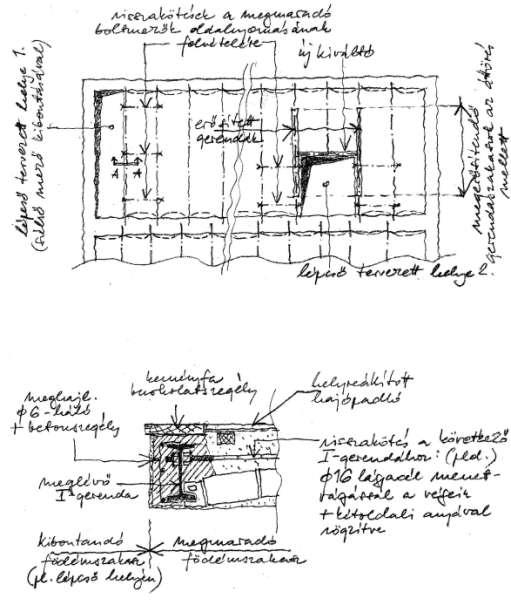 visszakötések a megmaradó
boltmezők oldalnyomásának
felvételére
új kiváltó
lépcső tervezett helye 1.
(szélső mező kibontásával)
erősített
gerendák
A A
megerősítendő
gerendaszakaszok az áttörés
mellett
lépcső tervezett helye 2.
keményfa
burkolatszegély
helyreállított
hajópadló
meghajl.
φ6-háló
+ betonszegély
meglévő
I-gerenda
visszakötés a következő
I-gerendához: (pld.)
φ16 lágyacél menet-
vágással a végein
+ kétoldali anyával
rögzítve
kibontandó
födémszakasz
(pl. lépcső helyén)
megmaradó
födémszakasz